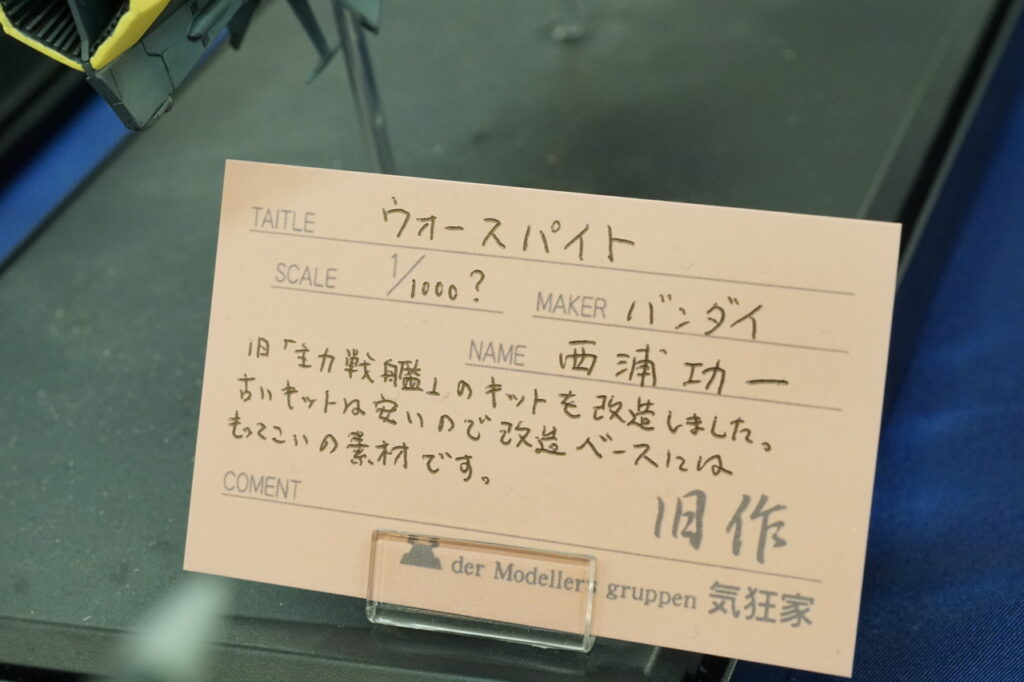 TAITLE ウォースパイト
SCALE 1/1000?
MAKER バンダイ
NAME 西浦功一
旧「主力戦艦」のキットを改造しました。
古いキットは安いので改造ベースには
もってこいの素材です。
COMENT
旧作
der Modellers gruppen 気狂家